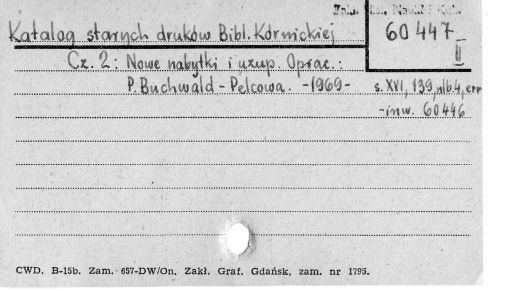 Katalog starych druków Bibl. Kórnickiej
60 447
II
Cz. 2: Nowe nabytki i uzup. Oprac.:
P. Buchwald-Pelcowa. -1969- s. XVI, 139, nlb. 4, err
-inw. 60446
CWD. B-15b. Zam. 657-DW/On. Zakł. Graf. Gdańsk, zam. nr 1795.